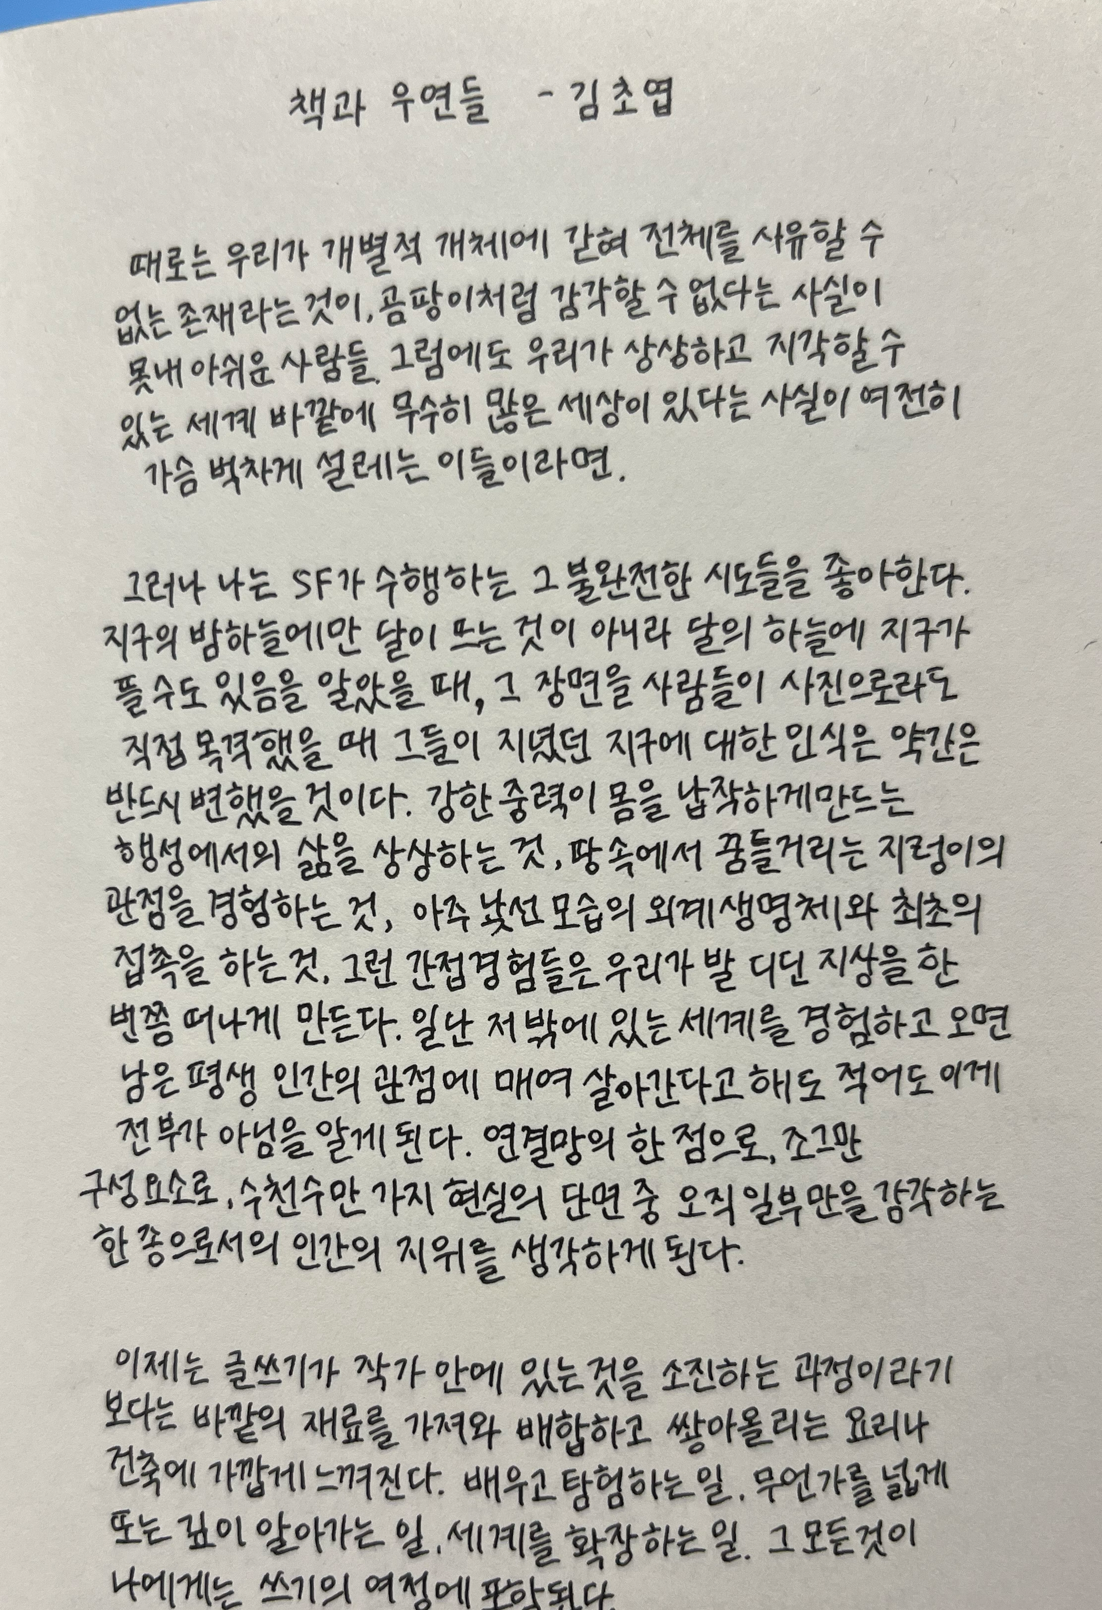 책과 우연들 - 김초엽
때로는 우리가 개별적 개체에 갇혀 전체를 사유할 수
없는 존재라는 것이, 곰팡이처럼 감각할 수 없다는 사실이
못내 아쉬운 사람들. 그럼에도 우리가 상상하고 지각할 수
있는 세계 바깥에 무수히 많은 세상이 있다는 사실이 여전히
가슴 벅차게 설레는 이들이라면.
그러나 나는 SF가 수행하는 그 불완전한 시도들을 좋아한다.
지구의 밤하늘에만 달이 뜨는 것이 아니라 달의 하늘에 지구가
뜰 수도 있음을 알았을 때, 그 장면을 사람들이 사진으로라도
직접 목격했을 때 그들이 지녔던 지구에 대한 인식은 약간은
반드시 변했을 것이다. 강한 중력이 몸을 납작하게 만드는
행성에서의 삶을 상상하는 것, 땅속에서 꿈틀거리는 지렁이의
관점을 경험하는 것, 아주 낯선 모습의 외계 생명체와 최초의
접촉을 하는 것. 그런 간접경험들은 우리가 발 디딘 지상을 한
번쯤 떠나게 만든다. 일단 저 밖에 있는 세계를 경험하고 오면
남은 평생 인간의 관점에 매여 살아간다고 해도 적어도 이게
전부가 아님을 알게 된다. 연결망의 한 점으로, 조그만
구성 요소로, 수천수만 가지 현실의 단면 중 오직 일부만을 감각하는
한 종으로서의 인간의 지위를 생각하게 된다.
이제는 글쓰기가 작가 안에 있는 것을 소진하는 과정이라기
보다는 바깥의 재료를 가져와 배합하고 쌓아올리는 요리나
건축에 가깝게 느껴진다. 배우고 탐험하는 일. 무언가를 넓게
또는 깊이 알아가는 일. 세계를 확장하는 일. 그 모든 것이
나에게는 쓰기의 여정에 포함된다.